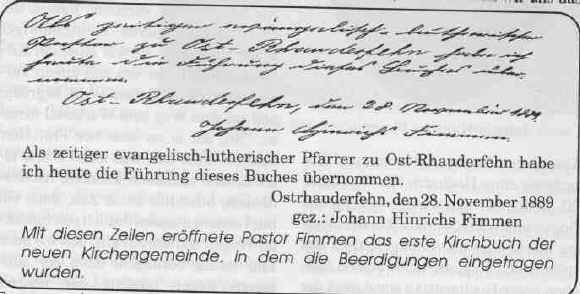 Als zeitiger evangelisch-lutherischer
Pastor zu Ost-Rhauderfehn habe ich
heute die Führung dieses Buches über-
nommen.
Ost-Rhauderfehn, den 28 November 1889
Johann Hinrichs Fimmen
Als zeitiger evangelisch-lutherischer Pfarrer zu Ost-Rhauderfehn habe
ich heute die Führung dieses Buches übernommen.
Ostrhauderfehn, den 28. November 1889
gez.: Johann Hinrichs Fimmen
Mit diesen Zeilen eröffnete Pastor Fimmen das erste Kirchbuch der
neuen Kirchengemeinde, in dem die Beerdigungen eingetragen
wurden.